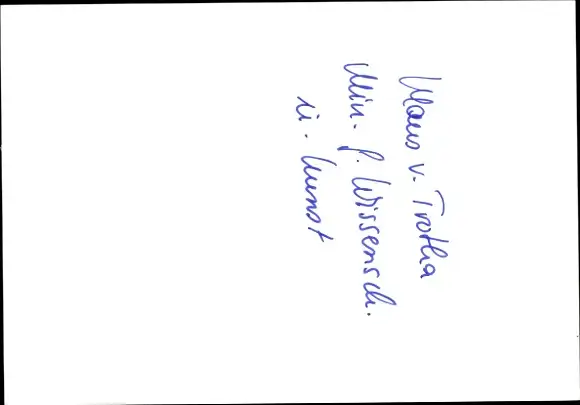 Klaus v. Trotha
Min. f. Wissensch.
u. Kunst